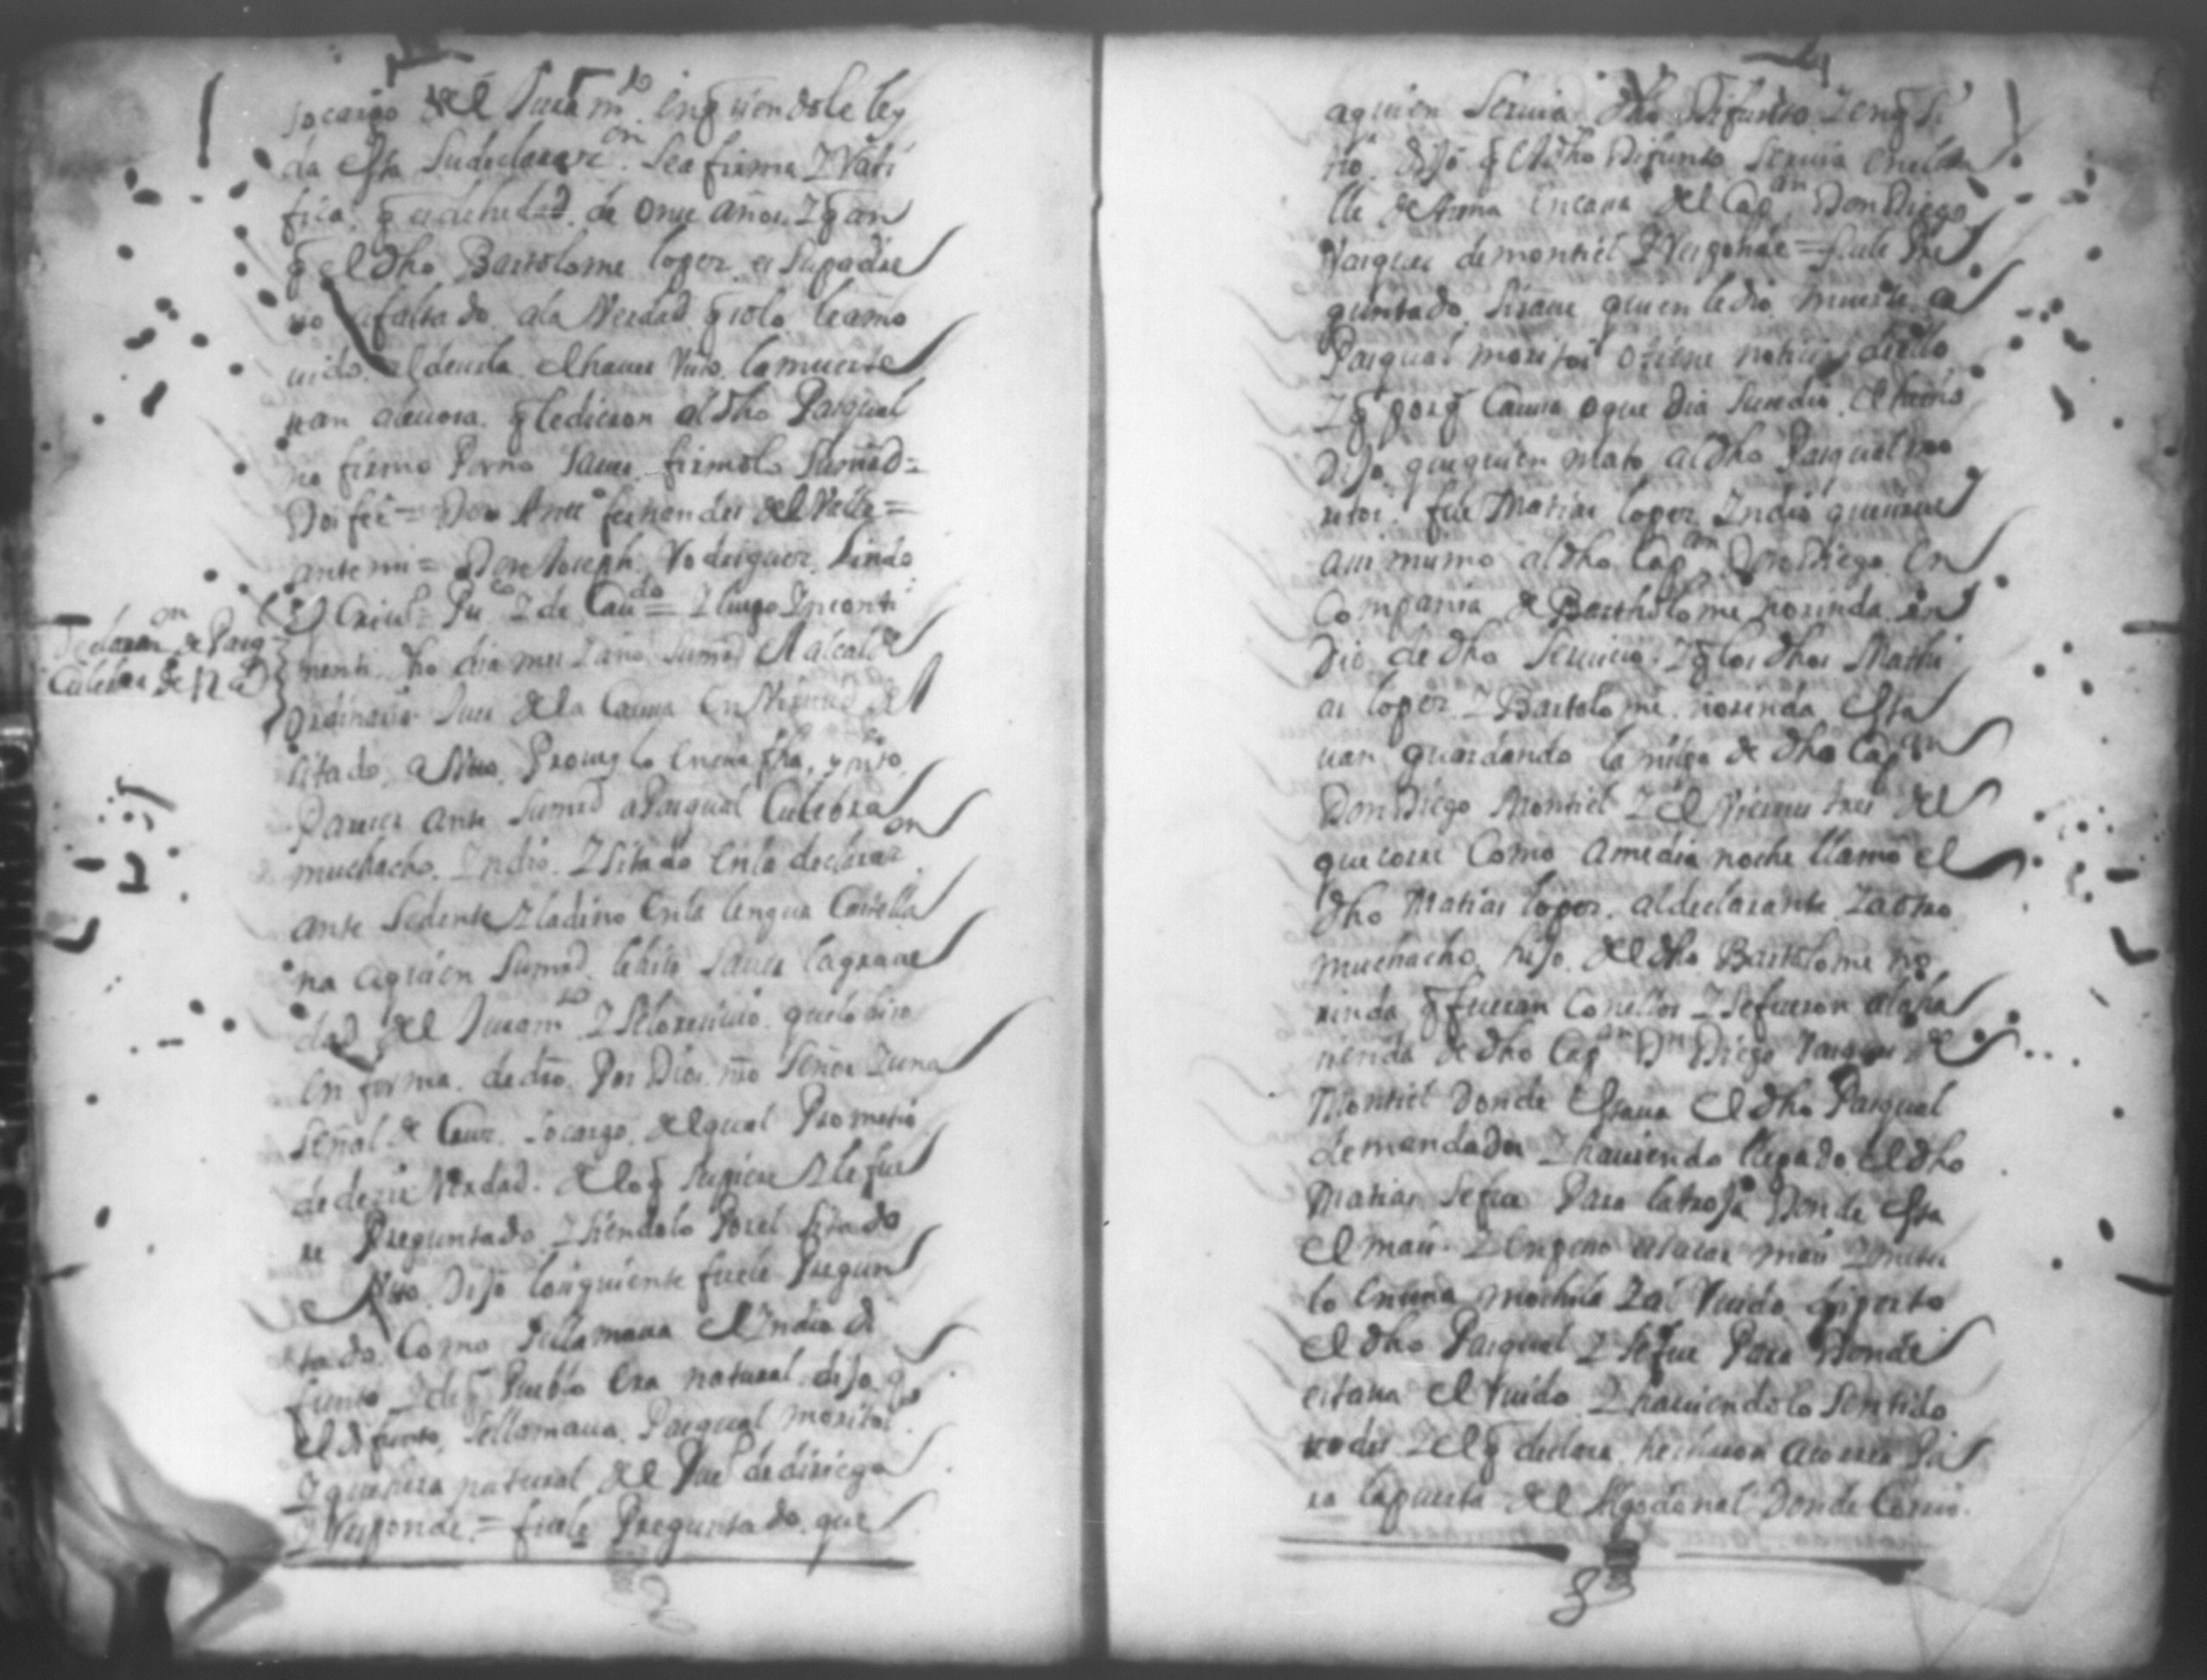 socargo del Juramto. en q̃ siendole ley
da esta su declarazon. se afirma Y Rati
fica. q̃ es de hedad. de onze años. Y q̃ an
q̃ el dho Bartolome lopez es su padre
no a faltado a la Verdad q̃ solo le a mo
uido. a desirla. el hauer Visto la muerte
tan aleuosa. q̃ le dieron al dho Pasqual
no firmo Por no sauer firmolo Su md =
Doi feê = Don Anto fernandes del Valle =
ante mi = Don Joseph Rodriguez lindo
Criuo = Puco Y de Caudo = Y luego Yn conti
nenti dho dia mes Y año su md el alcalde
ordinario Jues de la Causa en Virtud del
sitado Auto Proueydo en esta fha, yso
Pareser ante su md a Pasqual Culebra
muchacho. Indio. Y sitado en la declarazon
ante sedente Y ladino en la lengua Castella
na a quien su md. le hiso sauer la graue
dad del Juramto Y se lo resiuio. que lo hiso
en forma. de dro. Por Dios nro Señor Y una
señal de Cruz. socargo. del qual Prometio
de desir Verdad. de lo q̃ supiere Y le fue
re Preguntado Y siendolo Por el sitado
Auto Dijo lo siguiente fuele Pregun
tado Como se llamaua el Indio di
funto Y de q̃ Pueblo era natural. dijo q̃
el difunto se llamaua Pasqual moritos
Y que hera natural del Puo de diriega
Y Responde = fuele Preguntado. que
Declarazon de Pasq
Culebra de 12 ad
a quien seruia dho Difunto Y en q̃ si
tio. dijo q̃ el dho Difunto seruia en el Ba
lle de Asma en casa del Capan Don Diego
Vasques de montiel Y Responde = fuele Pre
guntado si saue quien le dio muerte a
Pasqual moritos o tiene noticia dello
Y q̃ por q̃ Causa o que dia sucedio el hecho
Dijo que quien mato al dho Pasqual mo
ritos. fue Matias lopez Indio que sirue
asi mismo al dho Capan Don Diego en
Compania de Bartholome norinda in
dio de dho seruicio. Y q̃ los dhos Mathi
as lopez Y Bartolome norinda esta
uan guardando la milpa de dho Capan
Don Diego Montiel Y el Viernes tres del
que corre Como a media noche llamo el
dho Matias lopez. al declarante Y a otro
muchacho hijo. del dho Bartolome no
rinda q̃ fueran con ellos Y se fueron a la ha
sienda de dho Capan Dn Diego Vasques de
Montiel Donde estaua el dho Pasqual
de mandador Y hauiendo llegado el dho
Matias se fue Para la troja Donde esta
el mais. Y enpeso a sacar mais Y meter
lo en una mochila Y al Ruido desperto
el dho Pasqual Y se fue Para Donde
estaua el Ruido Y hauiendolo sentido
todos Y el q̃ declara. hecharon a correr Pa
ra la puerta del Algodonal Donde